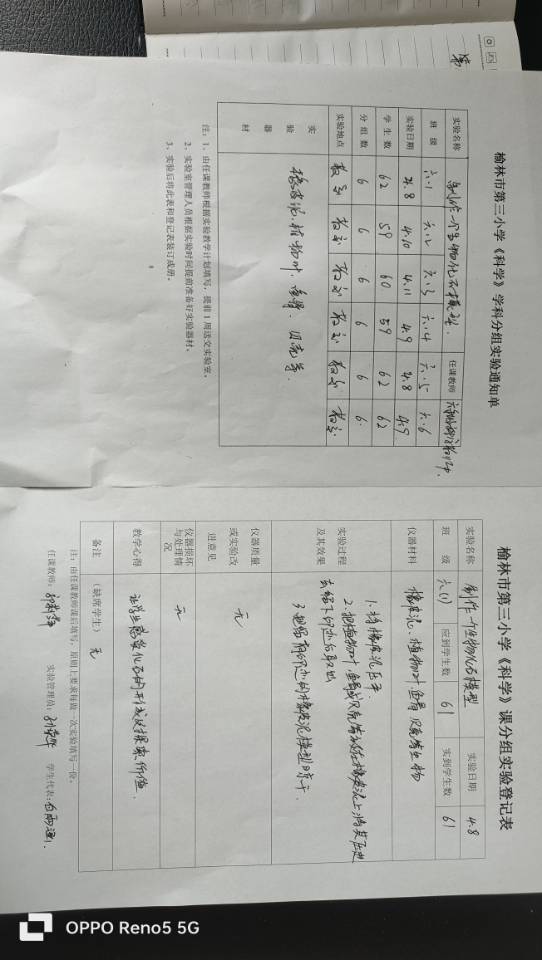 榆林市第三小学《科学》学科分组实验通知单
实验名称 制作一个生物化石模型. 任课教师
班 级 六.1 六.2 六.3 六.4 六.5 六.6
实验日期 4.8 4.10 4.11 4.9 4.8 4.9
学 生 数 62 59 60 59 62 62
分 组 数 6 6 6 6 6 6
实验地点 教室 教室 教室 教室 教室 教室
实 验 器 材 橡皮泥、植物叶、鱼骨、贝壳等.
注:1、由任课教师根据实验教学计划填写,提前1周送交实验室。
2、实验室管理人员根据实验时间提前准备好实验器材。
3、实验后将此表和登记表装订成册。
榆林市第三小学《科学》课分组实验登记表
实验名称 制作一个生物化石模型 实验日期 4.8
班 级 六(1) 应到学生数 61 实到学生数 61
仪器材料 橡皮泥、植物叶鱼骨 贝壳等生物
实验过程及其效果 1、将橡皮泥压平
2、把植物叶,鱼骨或贝壳等放在橡皮泥上将其压进
去留下印迹后取出
3、把留有印迹的橡皮泥模型晾干
仪器质量或实验改进意见 无
仪器损坏与处理情况 无
教学心得 让学生感受化石的形成及探索价值.
备注 (缺席学生) 无
注:由任课教师课后填写,原则上要求每做一次实验填写一份。
任课教师: 实验管理员: 学生代表:
OPPO Reno5 5G